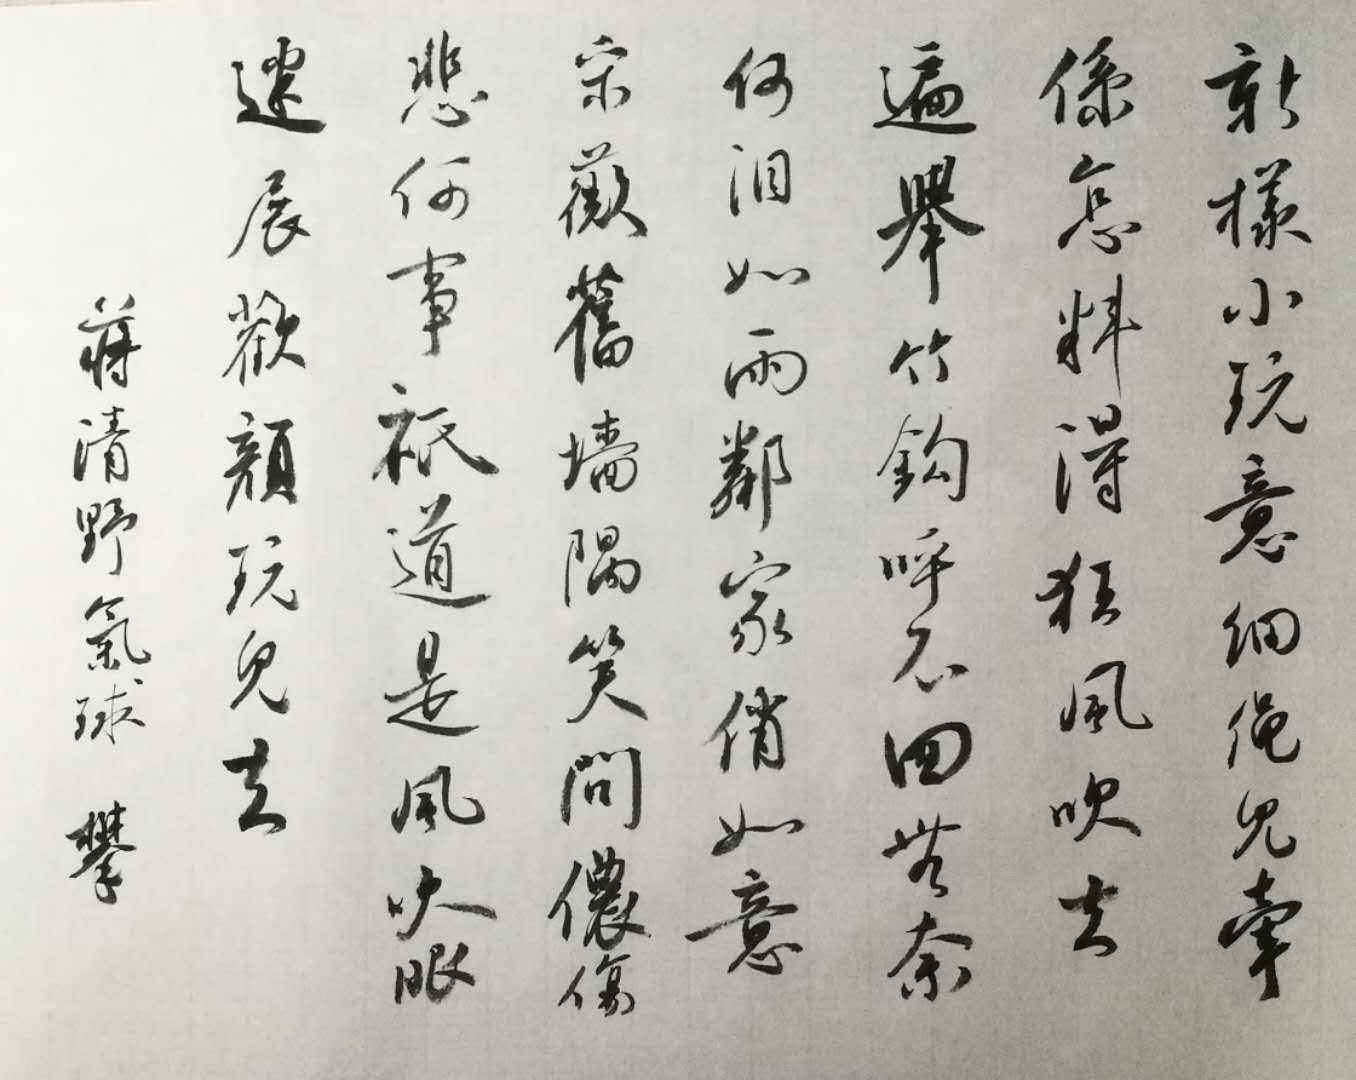 新樣小玩意細绳兒牽
係怎料得狂風吹去
遍舉竹鈎呼不回無奈
何泪如雨鄰家俏如意
來薇舊墻隅笑問儂傷
悲何事祇道是風吹眼
速展歡顏玩兒去
蔣清野氣球 攀